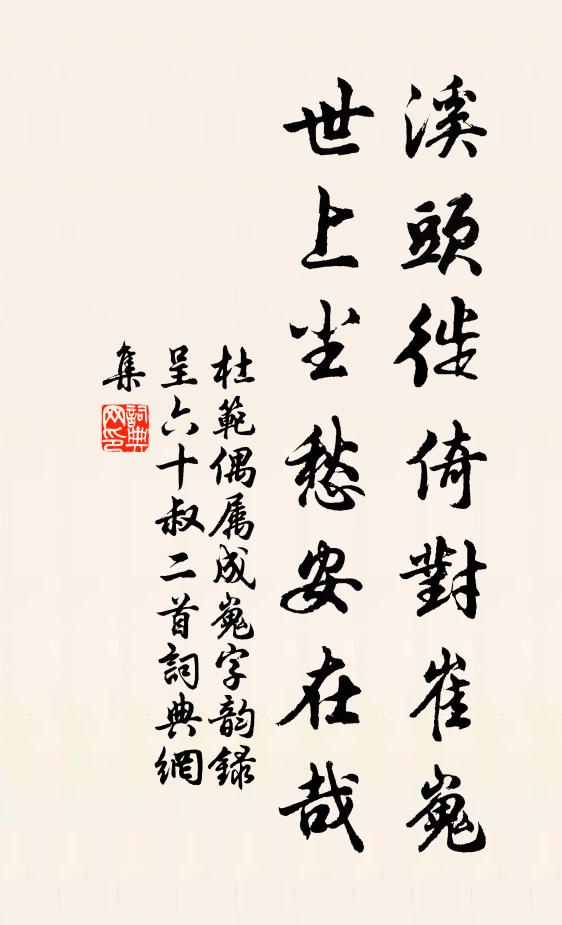 溪頭徙倚對崔嵬
世上尘愁安在哉
杜範偶属成嵬字韵録
呈六十叔二首詞典網
集
詞典
网印